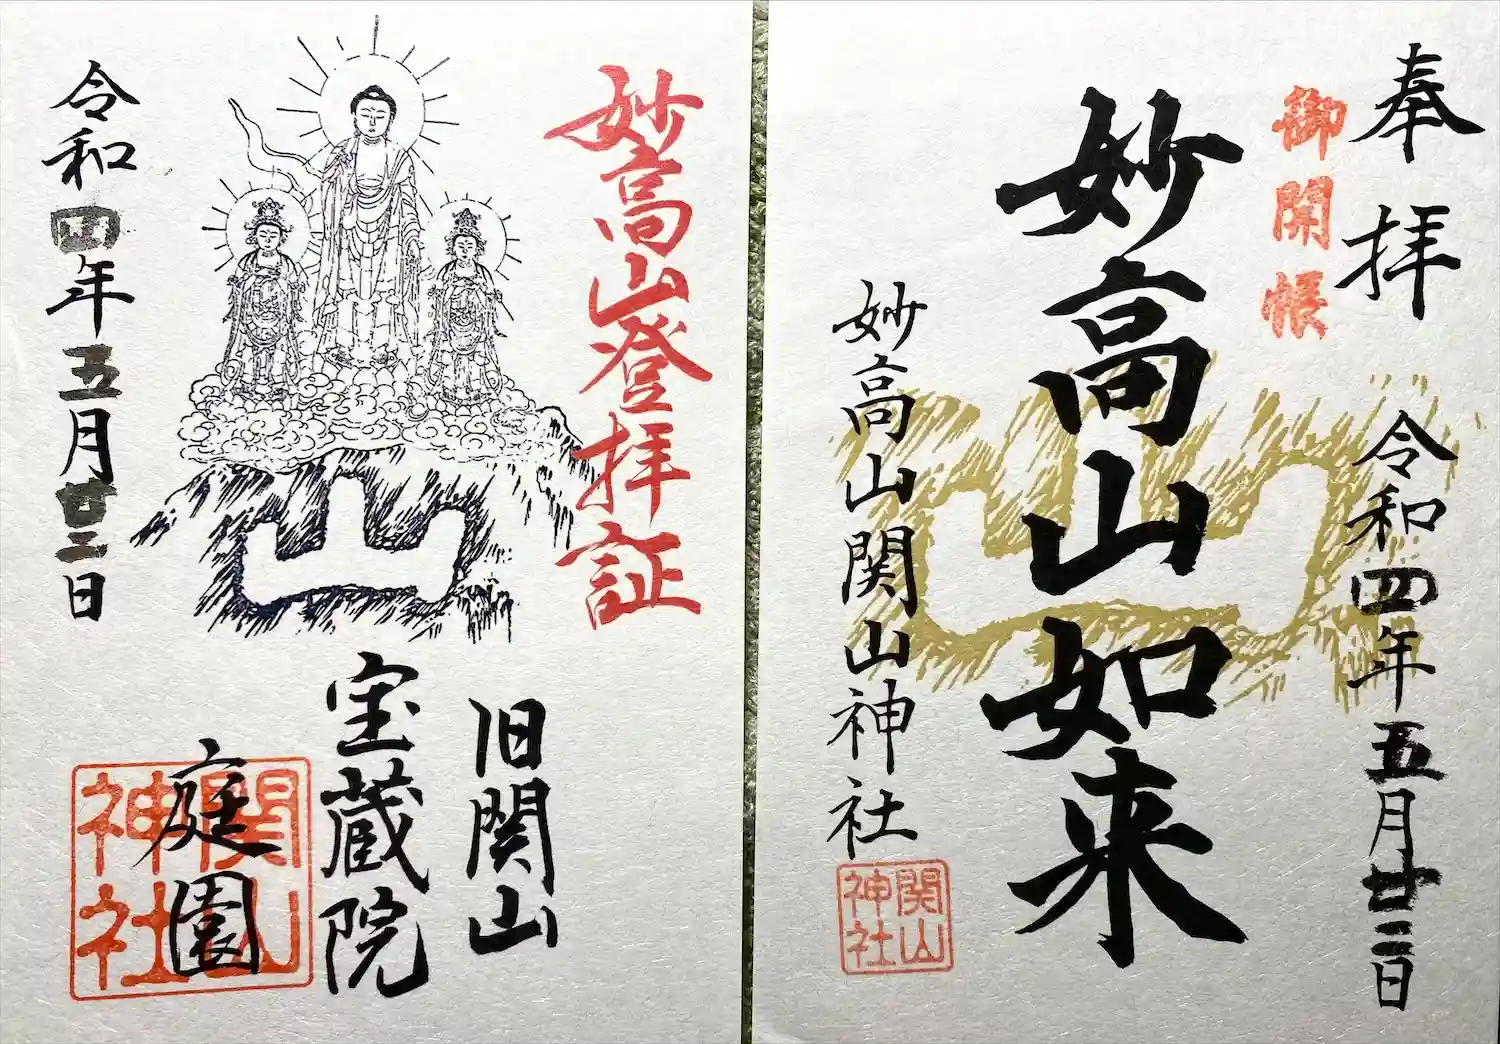 奉拝
御開帳
令和四年五月廿二日
妙高山如来
妙高山関山神社
関山神社
妙高山登拝証
令和四年五月廿二日
山
旧関山
宝蔵院
庭園
関山神社